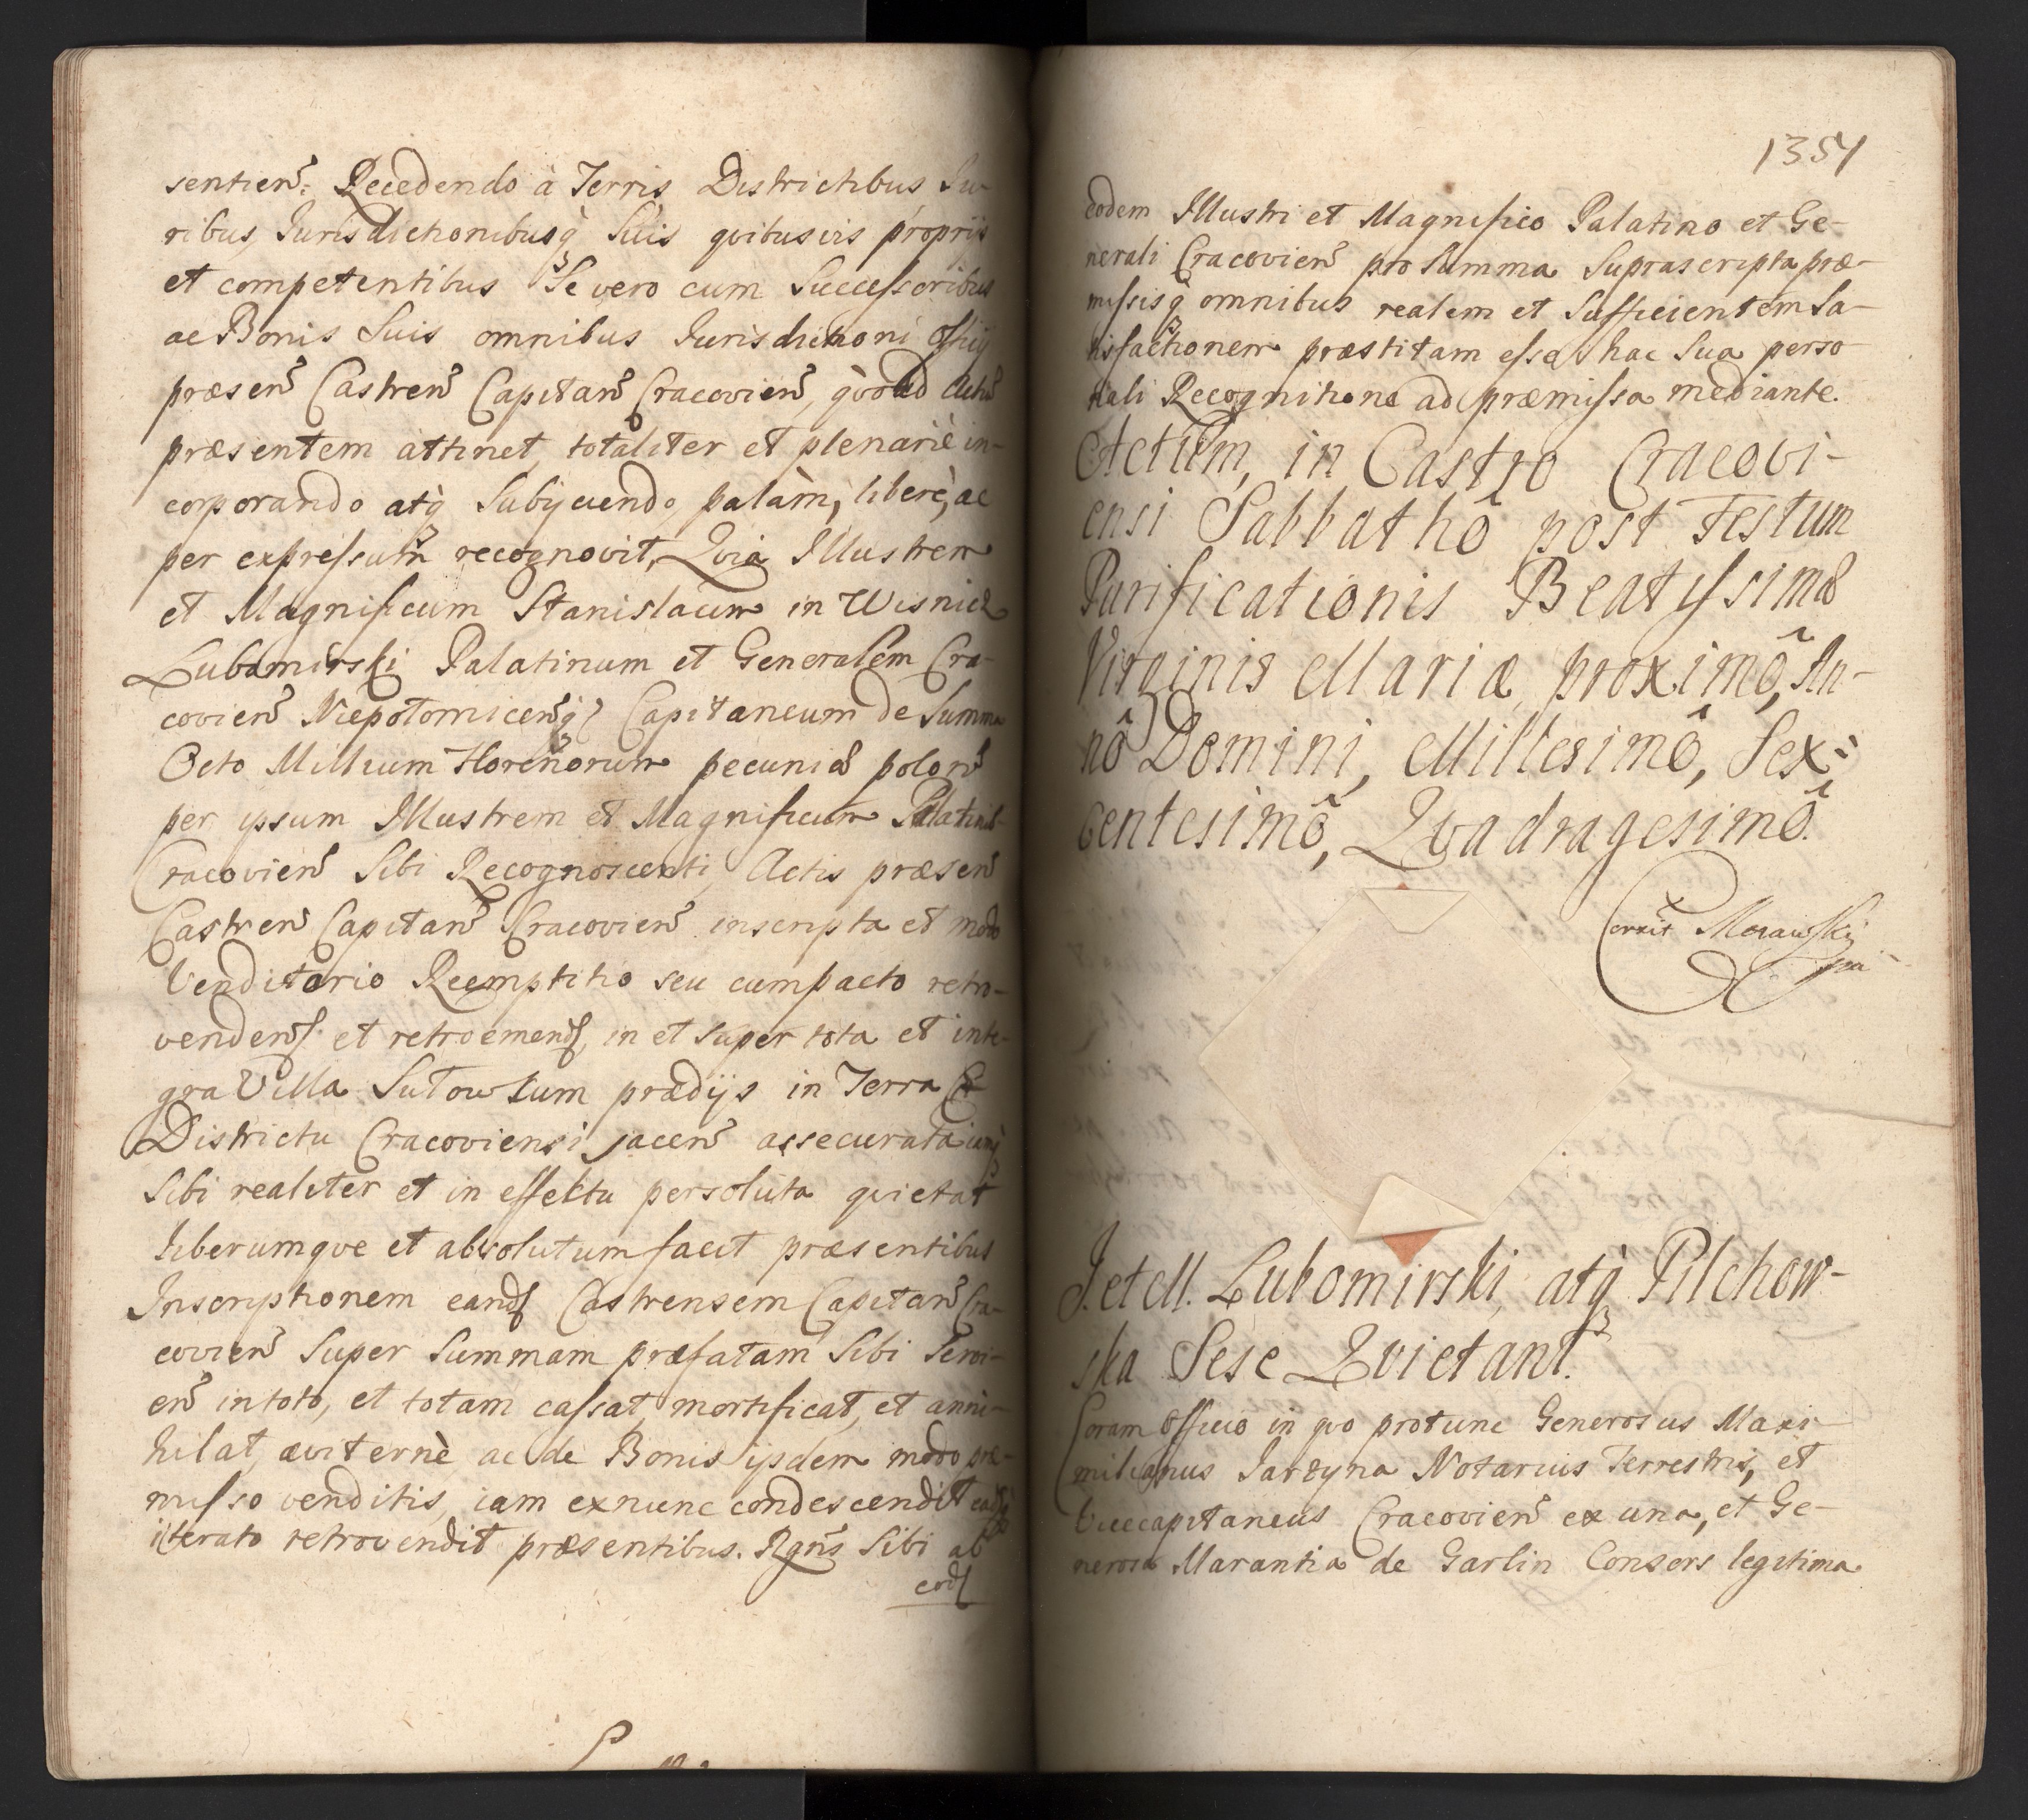 sentien: Recedendo à Terris Districtibus Iu-
ribus, Iurisdictionibusq́ Suis qvibusvis proprijs
et competentibus Se vero cum Successoribus
ac Bonis Suis omnibus Iurisdictioni Officij
præsen Castren Capitan Cracovien, qvoad Actum
præsentem attinet, totaliter et plenariè in-
corporando atq́ Subijciendo, palàm, liberè, ac
per expressum recognovit, Qvia Illustrem
et Magnificum Stanislaum in Wisnicz
Lubomirski Palatinum et Generalem Cra-
covien Niepotomicenq́ Capitaneum de Summa
Octo Millium Florenorum pecuniæ polon
per ipsum Illustrem et Magnificum Palatinū
Cracovien Sibi Recognoscenti, Actis præsen
Castren Capitan Cracovien inscripta et modo
Venditorio Reemptitio seu cum pacto retro-
vendend et retroemend, in et super tota et inte-
gra Villa Sułow cum prædijs in Terra Et
Districtu Cracoviensi jacen assecurata
Sibi realiter et in effektu persoluta qvietat
liberumqve et absolutum facit præsentibus
Inscriptionem eand Castrensem Capitan Cra-
covien Super Summam præfatam Sibi Servi-
en in toto, et totam cassat, mortificat, et anni-
hilat, æviternè, ac de Bonis ijsdem modo præ-
misso venditis, iam exnunc condescendit eaq́
iterato retrovendit præsentibus. Rgns Sibi ab
eod
1351
eodem Illustri et Magnifico Palatino et Ge-
nerali Cracovien pro Summa Suprascripta præ-
missisq́ omnibus realem et Sufficientem Sa-
tisfactionem præstitam esse, hac Sua perso
nali Recognitione ad præmissa mediante.
Actum, in Castro Cracovi-
ensi Sabbathô post Festum
Purificationis Beatissimæ
Virginis Mariæ proximô, An-
nô Domini, Millesimô, Sex-
centesimô, Qvadragesimô.
Correxit Morawski
mpa
I. et M. Lubomirski, atq́ Pilchow-
ska Sese Qvietant.
Coram Officio in qvo protunc Generosus Maxi
milianus Iarzyna Notarius Terrestris, et
Vicecapitaneus Cracovien ex una, et Ge-
nerosa Marantia de Garlin Consors legitima